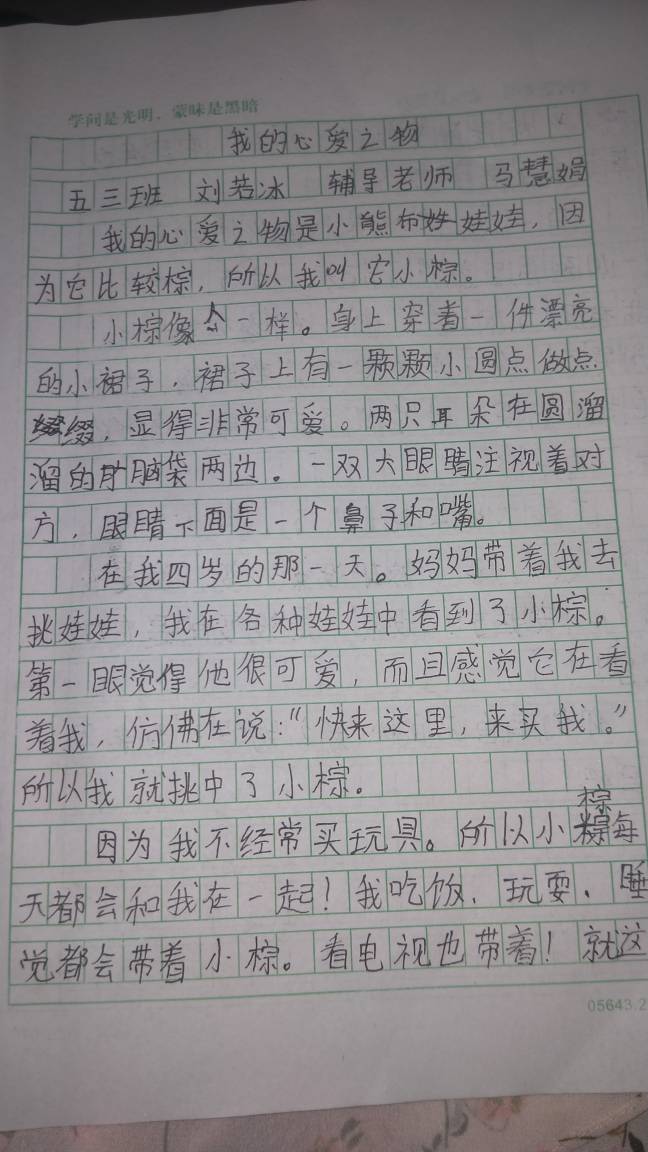 学问是光明，蒙昧是黑暗
我的心爱之物
五三班 刘若冰 辅导老师 马慧娟
我的心爱之物是小熊布娃娃，因
为它比较棕，所以我叫它小棕。
小棕像人一样。身上穿着一件漂亮
的小裙子，裙子上有一颗颗小圆点做点
缀，显得非常可爱。两只耳朵在圆溜
溜的脑袋两边。一双大眼睛注视着对
方，眼睛下面是一个鼻子和嘴。
在我四岁的那一天。妈妈带着我去
挑娃娃，我在各种娃娃中看到了小棕。
第一眼觉得他很可爱，而且感觉它在看
着我，仿佛在说：“快来这里，来买我。”
所以我就挑中了小棕。
因为我不经常买玩具。所以小棕每
天都会和我在一起！我吃饭、玩耍、睡
觉都会带着小棕。看电视也带着！就这
05643.2